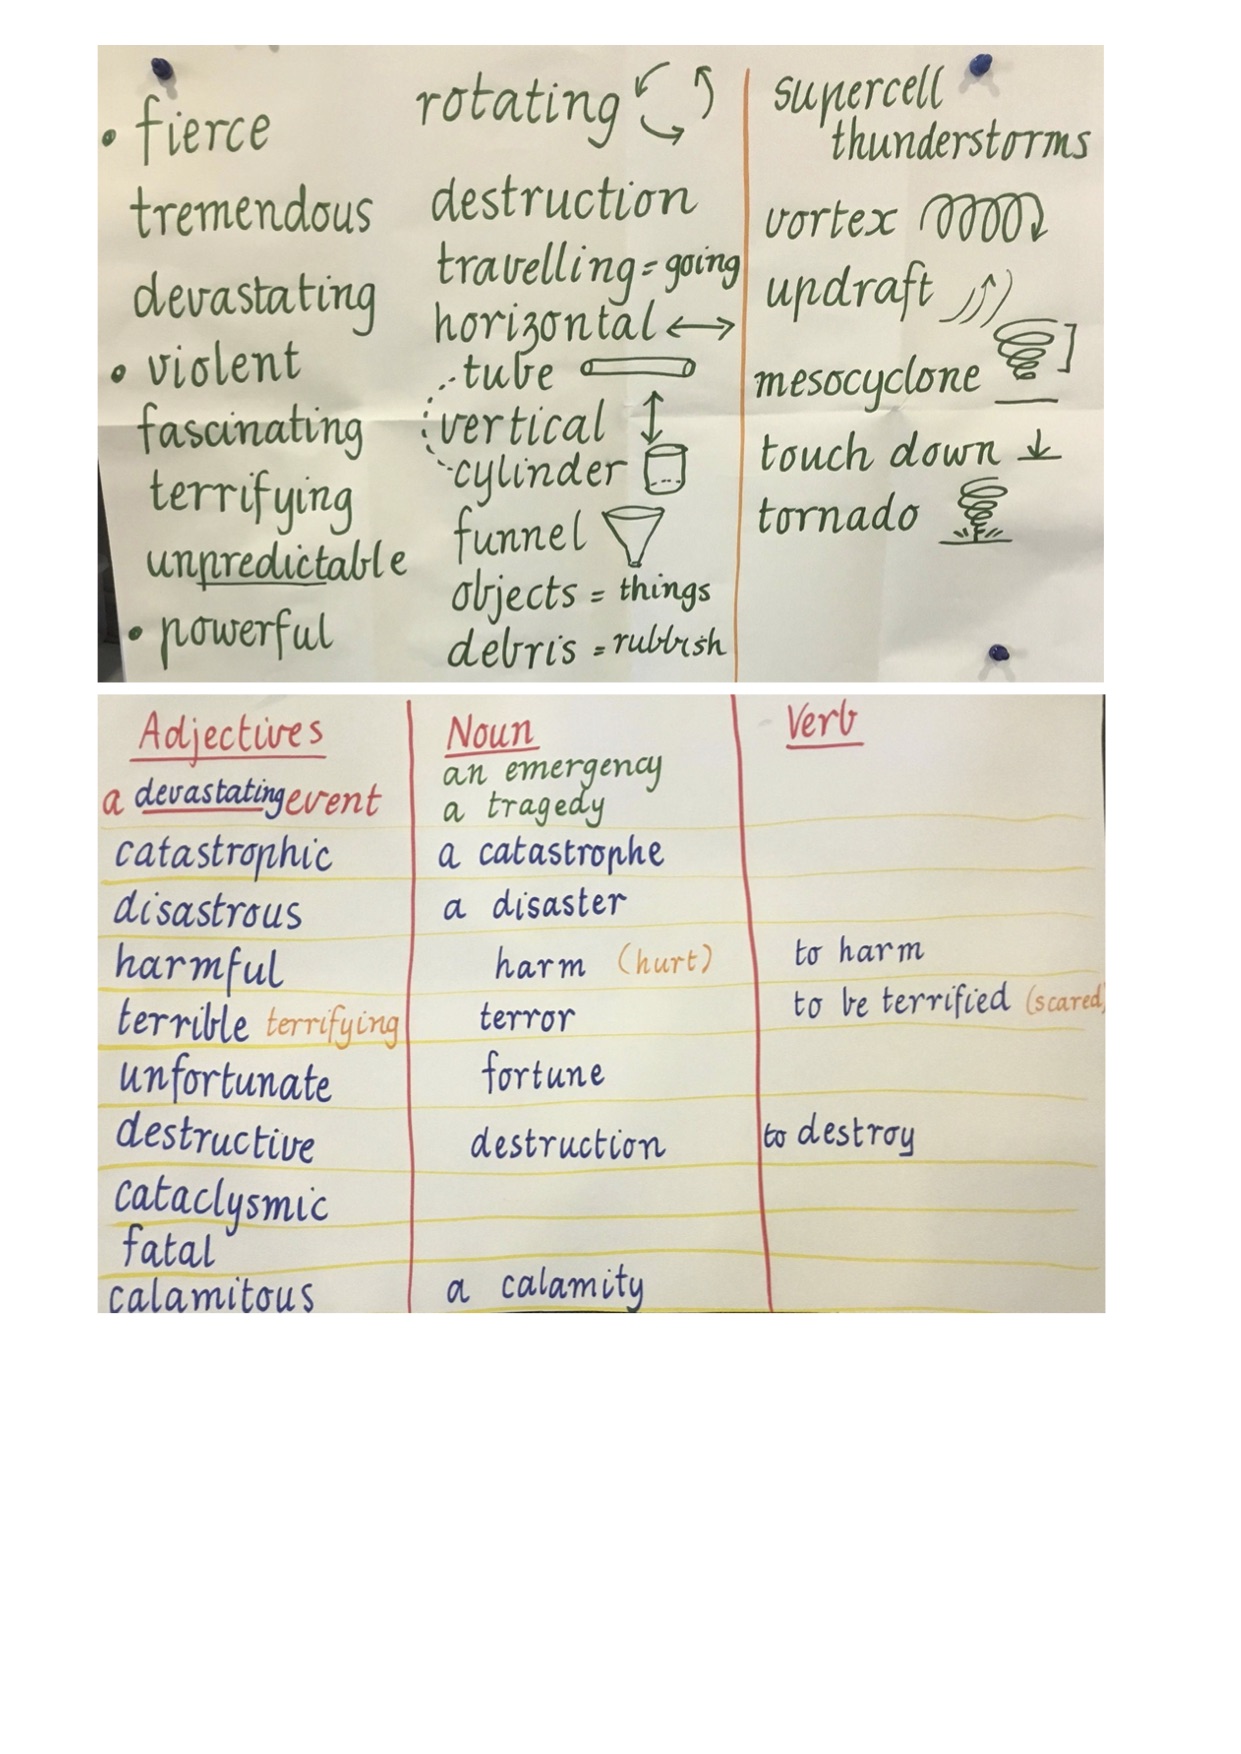 • fierce
tremendous
devastating
• violent
fascinating
terrifying
unpredictable
• powerful
rotating
destruction
travelling = going
horizontal
tube
vertical
cylinder
funnel
objects = things
debris = rubbish
supercell
thunderstorms
vortex
updraft
mesocyclone
touch down
tornado
Adjectives
a devastating event
catastrophic
disastrous
harmful
terrible terrifying
unfortunate
destructive
cataclysmic
fatal
calamitous
Noun
an emergency
a tragedy
a catastrophe
a disaster
harm (hurt)
terror
fortune
destruction
a calamity
Verb
to harm
to be terrified (scared)
to destroy